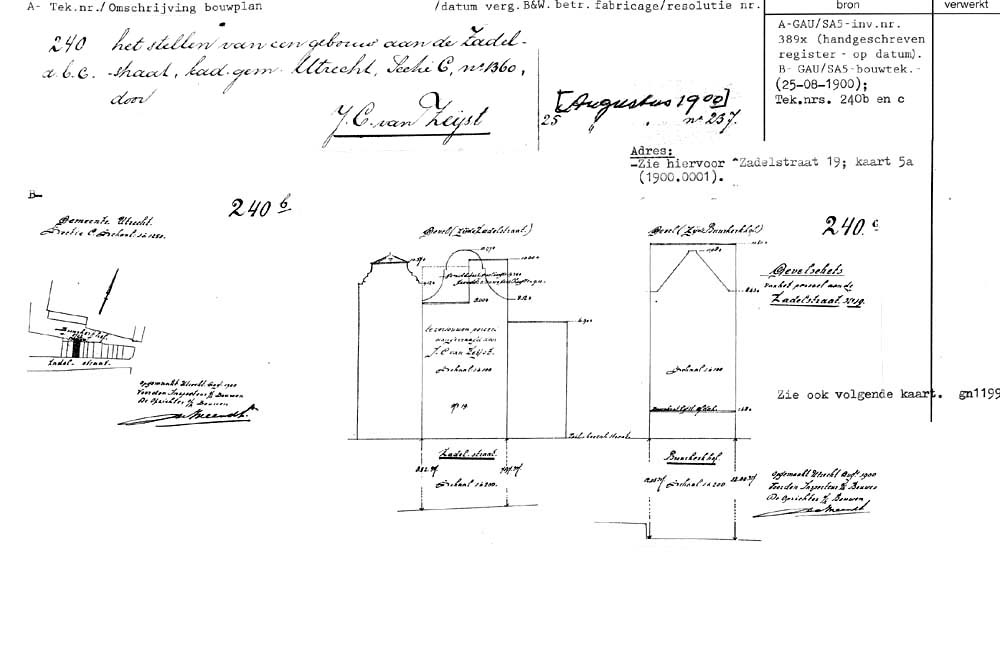 A- Tek.nr./ Omschrijving bouwplan /datum verg.B&W. betr. fabricage/resolutie nr. bron verwerkt
240 het stellen van een gebouw aan de Zadel-
a.b.c. straat, kad. gem. Utrecht, Sectie C, no 1360,
door
J. C. van Zeijst
[Augustus 1900]
25 " . no 237.
A-GAU/SA5-inv.nr.
389x (handgeschreven
register - op datum).
B- GAU/SA5-bouwtek.-
(25-08-1900);
Tek.nrs. 240b en c
Adres:
-Zie hiervoor Zadelstraat 19; kaart 5a
(1900.0001).
B-
240 b
Gemeente Utrecht.
Sectie C. Schaal
Buurkerkhof.
Zadel. straat.
Opgemaakt Utrecht Aug. 1900
Voor den Inspecteur B/ Bouwen
De Opzichter B/ Bouwen
Gevel (Zijde Zadelstraat.)
te verbouwen perceel
aangevraagd door
J. C van Zeijst.
Schaal 1 à 100
no 19.
Zadel. straat.
Schaal 1 à 200.
Gevel (Zijde Buurkerkhof)
Schaal 1 à 100
Buurkerkhof.
Schaal 1 à 200
240. c
Gevelschets
van het perceel aan de
Zadelstraat. no 19.
Zie ook volgende kaart. gn1199
Opgemaakt Utrecht Augs. 1900
Voor den Inspecteur B/ Bouwen
De Opzichter B/ Bouwen